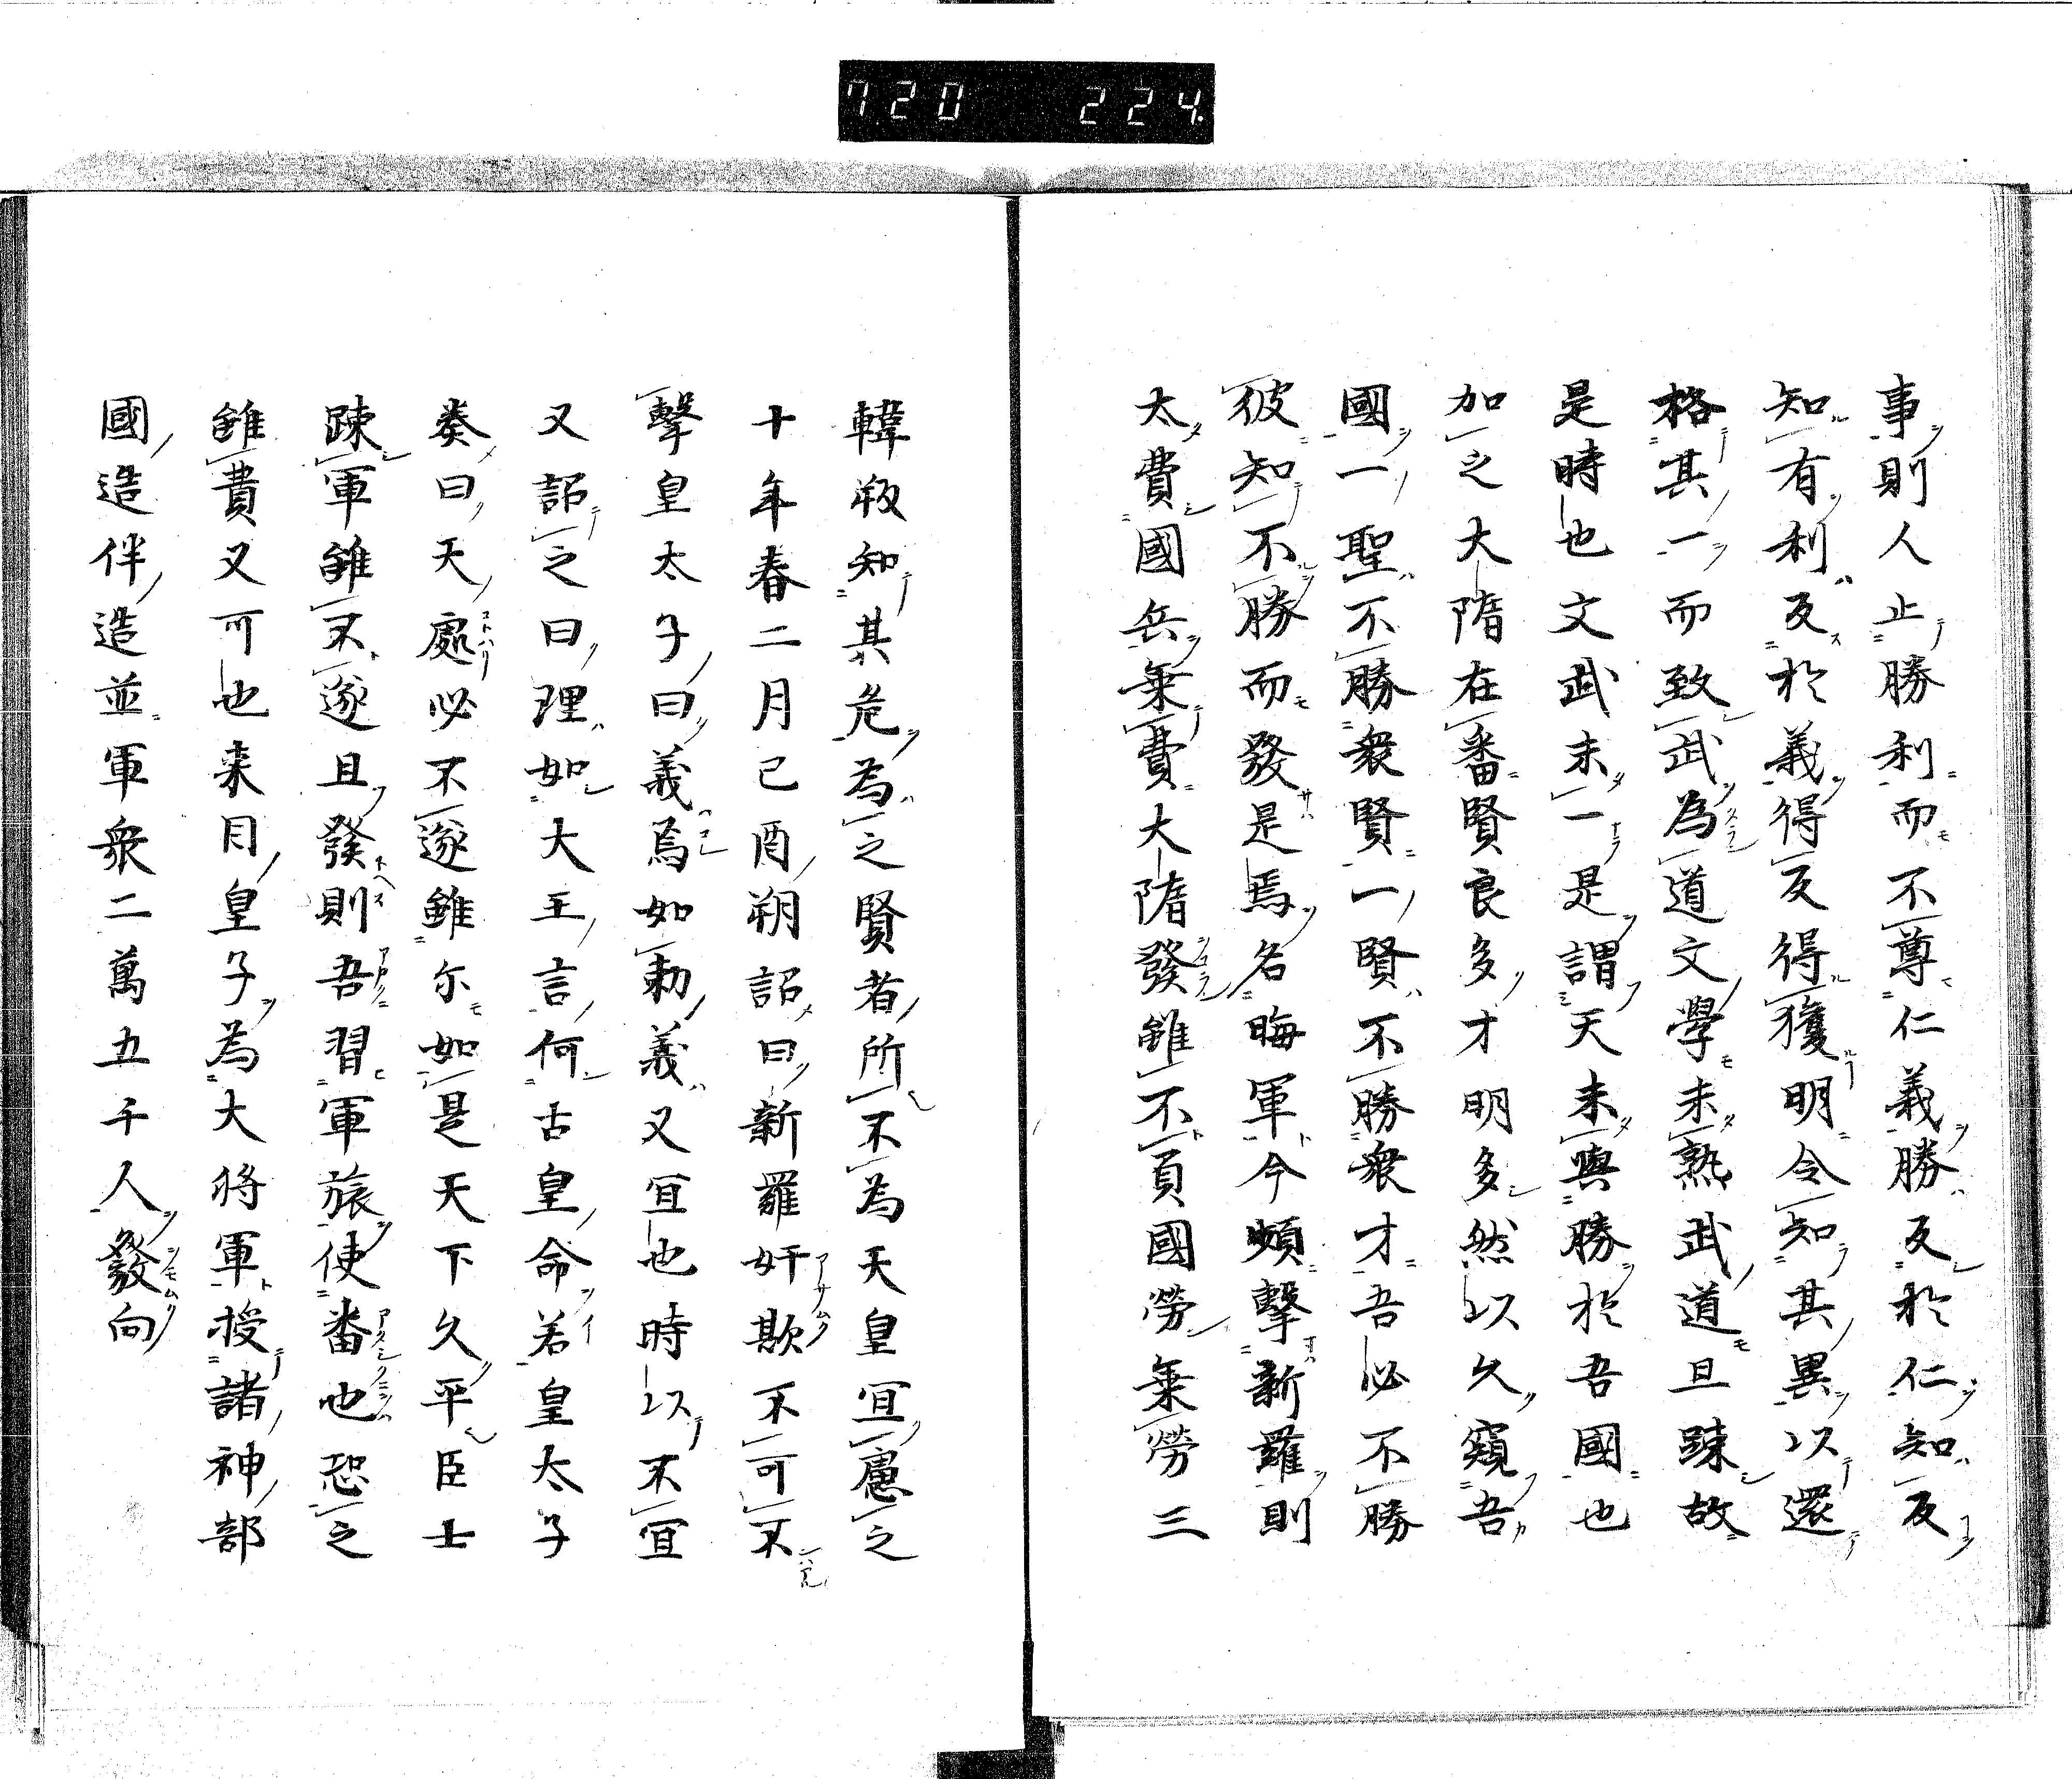 720 224
事則人止勝利而不尊仁義勝反於仁知反
知有利反於義得反得獲明令知其異以還
格其一而致武為道文學未熟武道且踈故
是時也文武未一是謂天未與勝於吾國也
加之大隋在番賢良多才明多然以久窺吾
國一聖不勝衆賢一賢不勝衆才吾必不勝
彼知不勝而發是焉名晦軍今頻擊新羅則
太費國兵乗費大隋發雖不負國勞乗勞三
韓叛知其危為之賢者所不為天皇宜慮之
十年春二月己酉朔詔曰新羅奸欺不可不
擊皇太子曰義焉如勅義又宜也時以不宜
又詔之曰理如大王言何古皇命若皇太子
奏曰天處必不遂雖尓如是天下久平臣士
踈軍雖不遂且發則吾習軍旅使番也恐之
雖費又可也来月皇子為大将軍授諸神部
國造伴造並軍衆二萬五千人發向